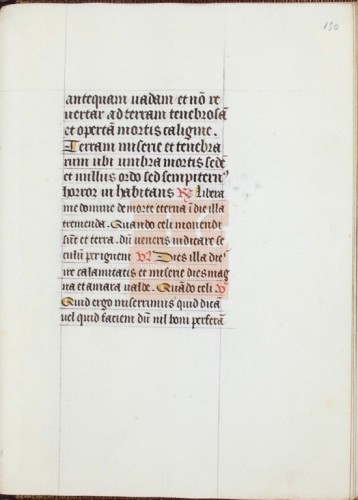 150
antequam uadam et nõ re
uertar ad terram tenebrosã
et opertã mortis caligine.
Terram miserie et tenebra
rum ubi umbra mortis sede
et nullus ordo sed sempitern⁹
horror in habitans R Libera
me domine de morte eterna ĩ die illa
tremenda. Quando celi mouendi
sũt et terra. dũ ueneris iudicare se
culũ per ignem V Dies illa die
ire calamitatis et miserie dies mag
na et amara ualde. Quãdo celi V
Quid ergo miserrimus quid dicã
uel quid faciem dũ nil boni perferã